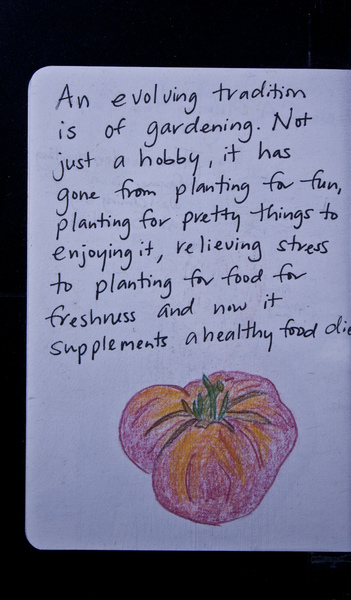 An evolving tradition
is of gardening. Not
just a hobby, it has
gone from planting for fun,
planting for pretty things to
enjoying it, relieving stress
to planting for food for
freshness and now it
supplements a healthy food die